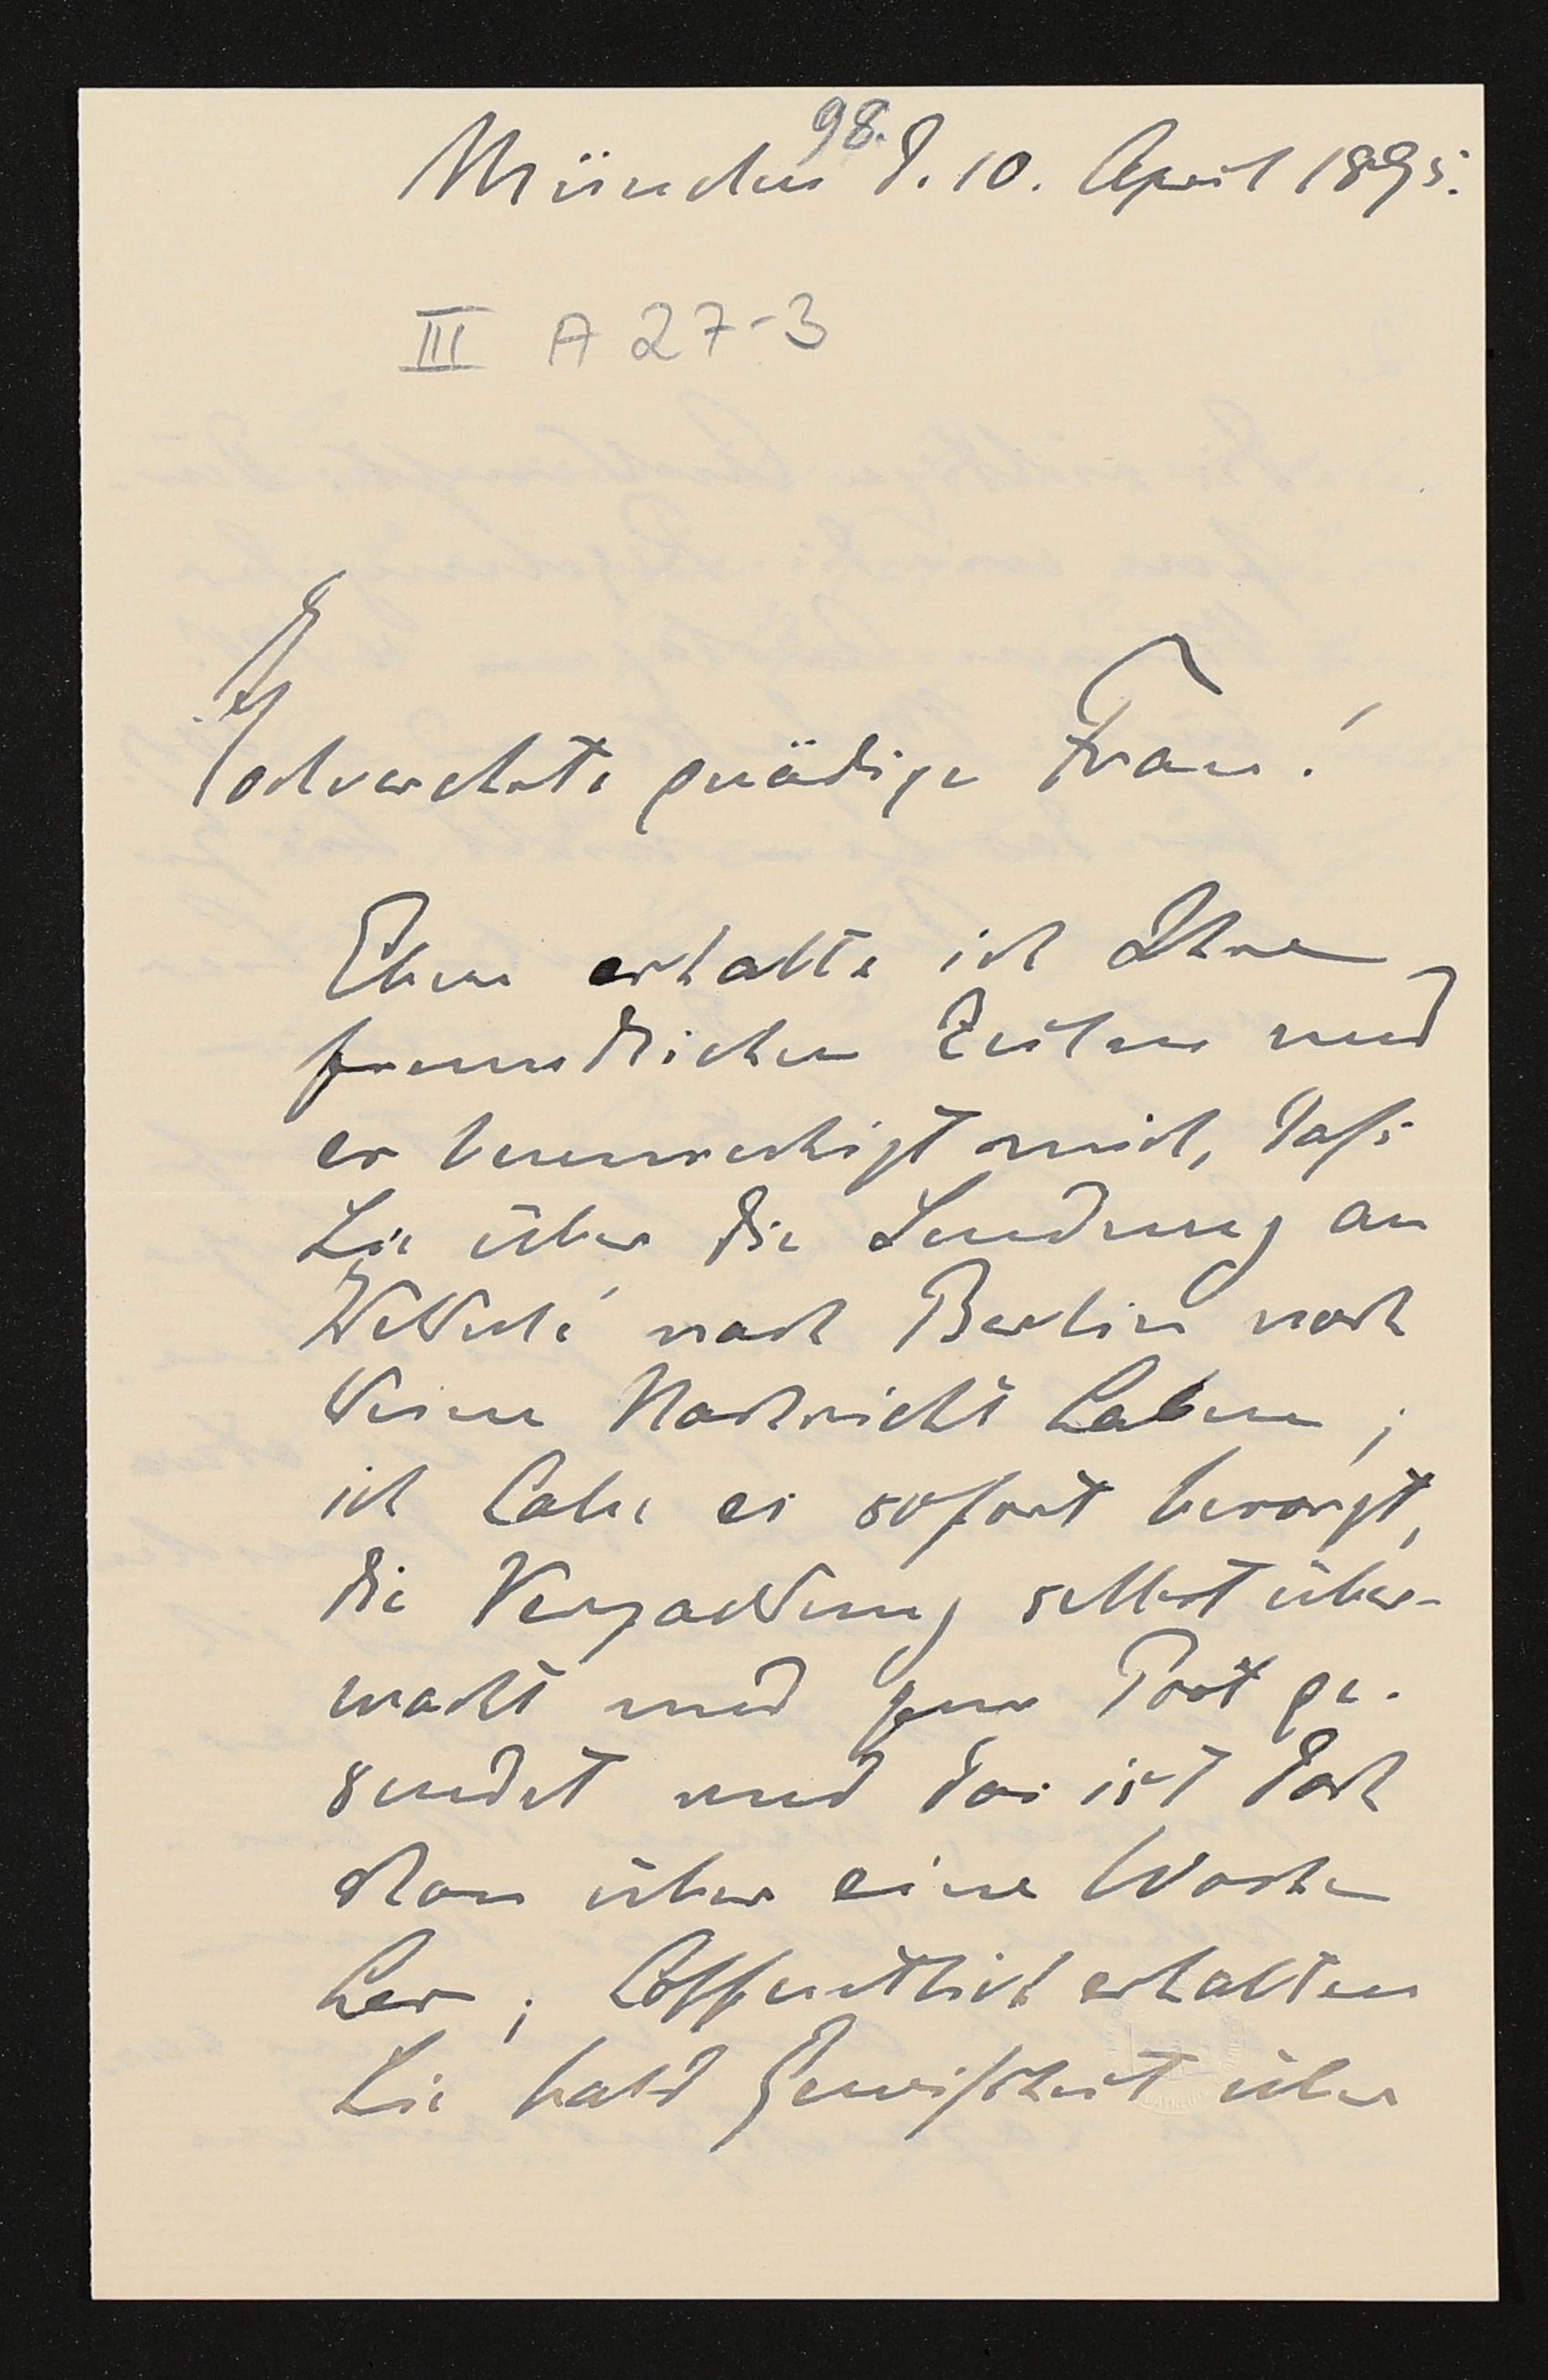 98.
München d. 10. April 1895.
III A 27-3
Hochverehrte gnädige Frau!
Eben erhalte ich Ihre
freundlichen Zeilen und
es beunruhigt mich, daß
Sie über die Sendung an
Kekulé nach Berlin noch
keine Nachricht haben;
ich habe es sofort besorgt,
die Verpackung selbst über-
wacht und zur Post ge-
sendet und das ist doch
schon über eine Woche
her; hoffentlich erhalten
Sie bald Gewißheit über